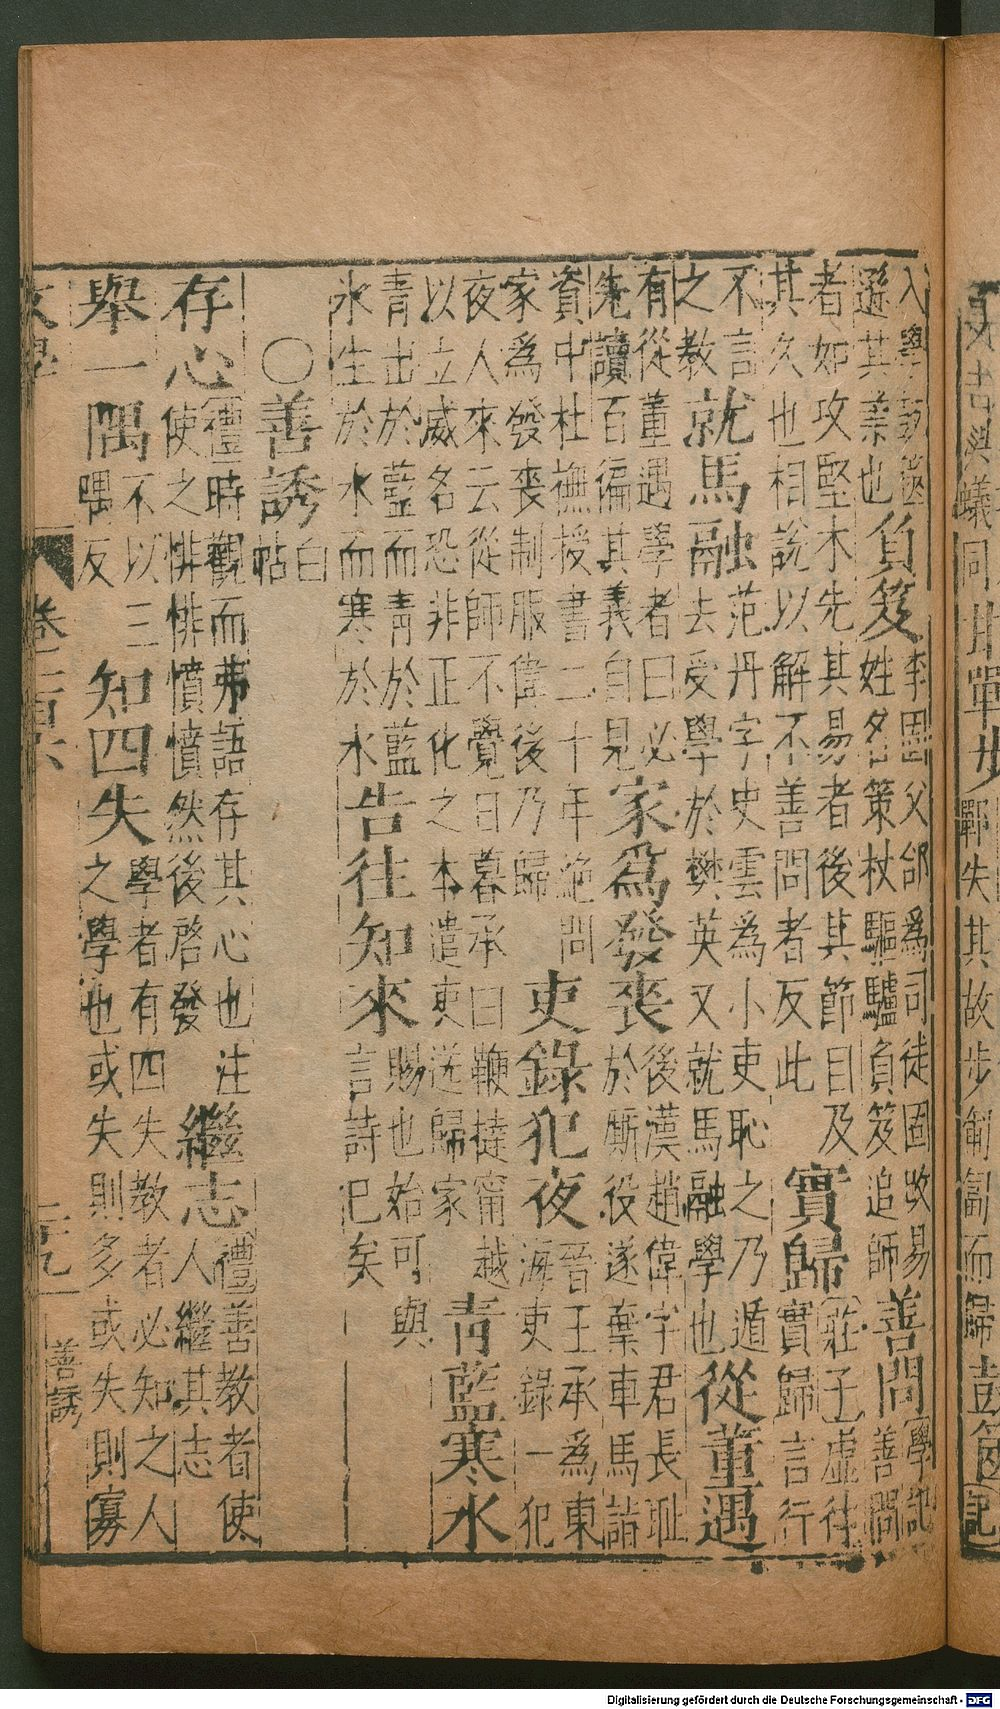 蟻同 單步 鄲失其故步匍匐而歸 鼓篋 記
入學鼓篋
遜其業也 負笈 李固父郃為司徒固改易
姓名策杖驅驢負笈追師 善問 學記
善問
者如攻堅木先其易者後其節目及
其久也相說以解不善問者反此 實歸 莊子虛往
實歸言行
不言
之教 就馬融 范丹字史雲為小吏恥之乃遁
去受學於樊英又就馬融學也 從董遇
有從董遇學者曰必
先讀百徧其義自見 家為發喪 後漢趙偉字君長耻
於廝役遂葉車馬詣
資中杜撫授書二十年絕問
家為發喪制服偉後乃歸 吏錄犯夜 晉王承為東
海吏錄一犯
夜人來云從師不覺日暮承曰鞭撻甯越
以立威名恐非正化之本遣吏送歸家 青藍寒水
青出於藍而青於藍
氷生於水而寒於水 告往知來 賜也始可與
言詩已矣
〇善誘 白
帖
存心 禮時觀而弗語存其心也注
使之悱悱憤憤然後啓發 繼志 禮善教者使
人繼其志
舉一隅 不以三
隅反 知四失 學者有四失教者必知之人
之學也或失則多或失則寡
文學 卷二百六 二十九 善誘
Digitalisierung gefördert durch die Deutsche Forschungsgemeinschaft - DFG